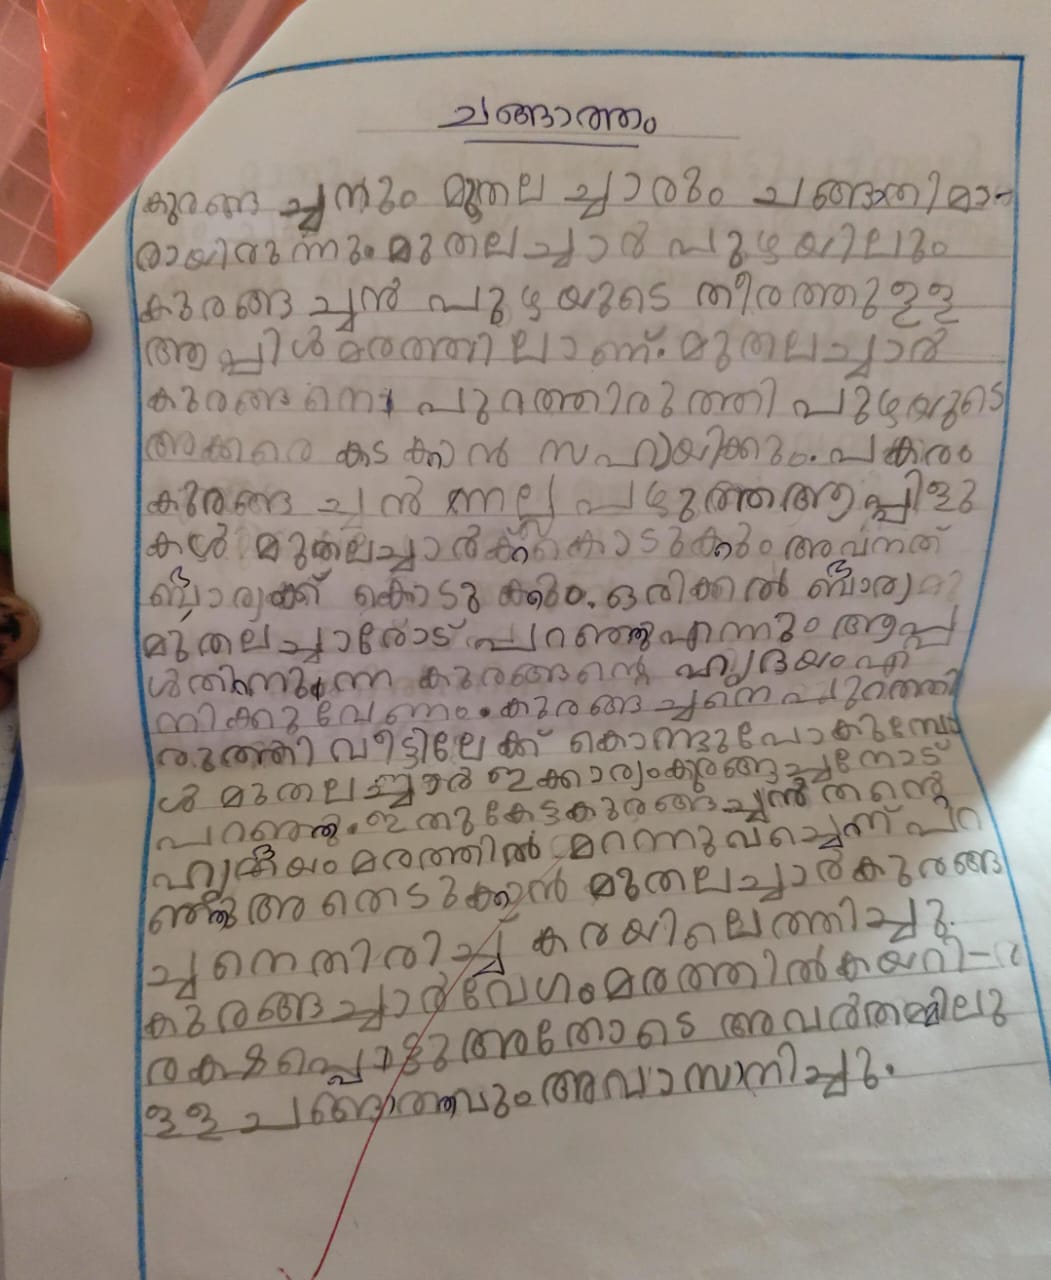 ചങ്ങാത്തം
കുരങ്ങ ച്ചനും മുതല ച്ചാരും ചങ്ങാതിമാ-
രായിരുന്നു. മുതലച്ചാർ പുഴയിലും
കുരങ്ങ ച്ചൻ പുഴയുടെ തീരത്തുള്ള
ആപ്പിൾ മരത്തി ലാണ്. മുതലച്ചാർ
കുരങ്ങനെ പുറത്തിരുത്തി പുഴയുടെ
അക്കരെ കട ക്കാൻ സഹായിക്കും. പകരം
കുരങ്ങ ച്ചൻ നല്ല പഴുത്ത ആപ്പിളു
കൾ മുതലച്ചാർക്ക് കൊടുക്കും അവനത്
ഭാര്യക്ക് കൊടു ക്കും. ഒരിക്കൽ ഭാര്യ
മുതല ച്ചാരോട് പറഞ്ഞു എന്നും ആപ്പി
ൾതിന്നുന്ന കുരങ്ങന്റെ ഹൃദയം എ
നിക്കു വേണം. കുരങ്ങ ച്ചനെ പുറത്തി
രുത്തി വീട്ടിലേക്ക് കൊണ്ടുപോകുമ്പോ
ൾ മുതലച്ചാർ ഇക്കാര്യം കുരങ്ങച്ചനോട്
പറഞ്ഞു. ഇതു കേട്ട കുരങ്ങച്ചൻ തന്റെ
ഹൃദയം മരത്തിൽ മറന്നുവച്ചെന്ന് പറ
ഞ്ഞു അതെടുക്കാൻ മുതലച്ചാർ കുരങ്ങ
ച്ചനെ തിരിച്ച് കരയിലെത്തിച്ചു.
കുരങ്ങച്ചാർ വേഗം മരത്തിൽ കയറി-
രക്ഷപ്പെട്ടു അതോടെ അവർതമ്മിലു
ള്ള ചങ്ങാത്തവും അവസാനിച്ചു.